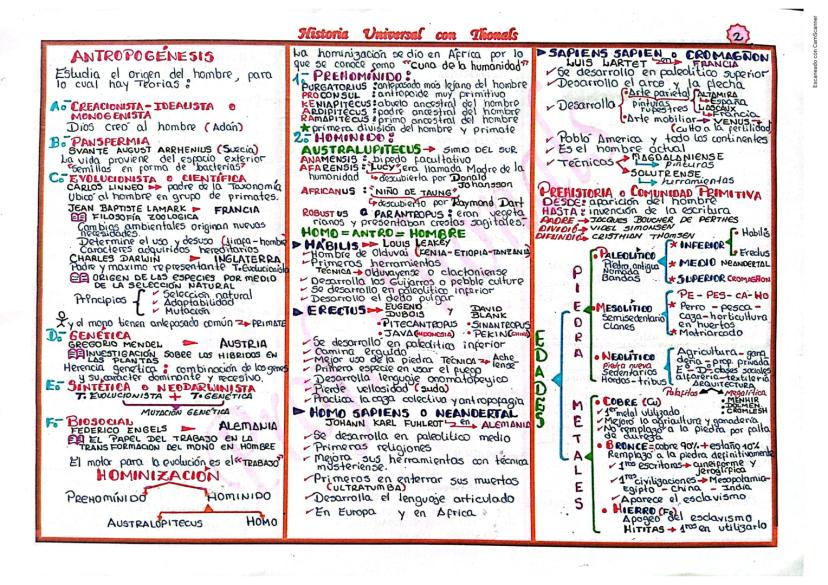 Historia Universal con Thonals
2
ANTROPOGÉNESIS
Estudia el origen del hombre, para
lo cual hay Teorías:
A.- CREACIONISTA - IDEALISTA o
MONOGENISTA
Dios creó al hombre (Adán)
B.- PANSPERMIA
SVANTE AUGUST ARRHENIUS (Suecia)
La vida proviene del espacio exterior
"semillas en forma de bacterias"
C.- EVOLUCIONISTA o CIENTÍFICA
CARLOS LINNEO → padre de la Taxonomía
Ubicó al hombre en grupo de primates.
JEAN BAPTISTE LAMARK → FRANCIA
FILOSOFÍA ZOOLOGICA
Cambios ambientales originan nuevas
necesidades.
Determine el uso y desuso (jirafa-hombre)
Caracteres adquiridos hereditarios
CHARLES DARWIN → INGLATERRA
Padre y maximo representante T. Evolución
ORIGEN DE LAS ESPECIES POR MEDIO
DE LA SELECCIÓN NATURAL
Principios
Selección natural
Adaptabilidad
Mutación
y el mono tienen antepasado común → PRIMATE
D.- GENÉTICA
GREGORIO MENDEL → AUSTRIA
INVESTIGACIÓN SOBRE LOS HIBRIDOS EN
LAS PLANTAS
Herencia genética: combinación de los genes
y su carácter dominante y recesivo.
E.- SINTÉTICA o NEODARWINISTA
T. EVOLUCIONISTA + T. GENÉTICA
MUTACIÓN GENÉTICA
F.- BIOSOCIAL
FEDERICO ENGELS → ALEMANIA
EL PAPEL DEL TRABAJO EN LA
TRANSFORMACION DEL MONO EN HOMBRE
El motor para la evolución es el "TRABAJO"
HOMINIZACIÓN
PREHOMÍNIDO HOMINIDO
AUSTRALOPITECUS HOMO
La hominización se dio en África por lo
que se conoce como "cuna de la humanidad"
1.- PREHOMÍNIDO:
PURGATORIUS: antepasado más lejano del hombre
PROCONSUL: antropoide muy primitivo
KENIAPITECUS: abuelo ancestral del hombre
ARDIPITECUS: padre ancestral del hombre
RAMAPITECUS: primo ancestral del hombre
primera división del hombre y primate
2.- HOMINIDO:
AUSTRALUPITECUS → SIMIO DEL SUR
ANAMENSIS: bipedo facultativo
AFARENSIS: "LUCY" era llamada Madre de la
humanidad descubierta por Donald
Johansson
AFRICANUS: "NIÑO DE TAUNG"
descubierto por Raymond Dart
ROBUSTUS o PARANTROPUS: eran vegeta
rianos y presentaban crestas sagitales.
HOMO = ANTRO = HOMBRE
HÁBILIS → LOUIS LEAKEY
Hombre de Olduvai (KENIA-ETIOPIA-TANZANIA)
Primeras herramientas
TECNICA → olduvayense o clactoniense
Desarrolla los Guijarros o pebble culture
Se desarrollo en paleolitico inferior
Desarrollo el dedo pulgar
ERECTUS → EUGENO DUBOIS y DAVID BLANK
PITECANTROPUS SINANTROPUS
JAVA (INDONESIA) PEKIN (CHINA)
Se desarrollo en paleolitico inferior
Camina erguido
Mejor uso de la piedra TÉCNICA → Ache
lense
Primera especie en usar el fuego
Desarrolla lenguaje onomatopéyico
Pierde vellosidad (suda)
Practica la caza colectiva y antropofagia
HOMO SAPIENS o NEANDERTAL
JOHANN KARL FUHLROT en→ ALEMANIA
Se desarrollo en paleolitico medio
Primeras religiones
Mejora sus herramientas con técnica
musteriense.
Primeros en enterrar sus muertos
(ULTRATUMBA)
Desarrolla el lenguaje articulado
En Europa y en Africa
SAPIENS SAPIEN o CROMAGÑON
LUIS LARTET en→ FRANCIA
Se desarrollo en paleolitico superior
Desarrollo el arco y la flecha
Desarrolla
Arte parietal
pinturas
rupestres
ALTAMIRA
España
LASCAUX
Francia
Arte mobiliar → VENUS
(culto a la fertilidad)
Pobló America y todo los continentes
Es el hombre actual
Técnicas
MAGDALANIENSE
pinturas
SOLUTRENSE
herramientas
PREHISTORIA o COMUNIDAD PRIMITIVA
DESDE: aparición del hombre
HASTA: invención de la escritura
PADRE → JACQUES BOUCHER DE PERTHES
DIVIDIÓ → VIGEL SIMONSEN
DIFUNDIÓ → CRISTHIAN THOMSEN
EDADES
PIEDRA
PALEOLÍTICO
Piedra antigua
Nomada
Bandas
INFERIOR
Hábilis
Erectus
MEDIO NEANDERTAL
SUPERIOR CROMAGÑON
MESOLÍTICO
Semisedentario
Clanes
PE - PES - CA - HO
Perro - pesca -
caza - horticultura
en huertos
Matriarcado
NEOLÍTICO
piedra nueva
Sedentarios
Hordas - tribus
Agricultura - gana
deria - prop. privada
E° - D° - clases sociales
alfareria - textileria
ARQUITECTURA
Palafitos Megalitica
MENHIR
DOLMEN
CROMLESH
METALES
COBRE (Cu)
1er metal utilizado
Mejoró la agricultura y ganaderia
No remplazó a la piedra por falta
de dureza
BRONCE = cobre 90% + estaño 10%
Remplazó a la piedra definitivamente
1ras escrituras → cuneiforme y
jeroglífica
1ras civilizaciones → Mesopotamia-
Egipto - China - India
Aparece el esclavismo
HIERRO (Fe)
Apogeo del esclavismo
HITITAS → 1ros en utilizarlo
Escaneado con CamScanner